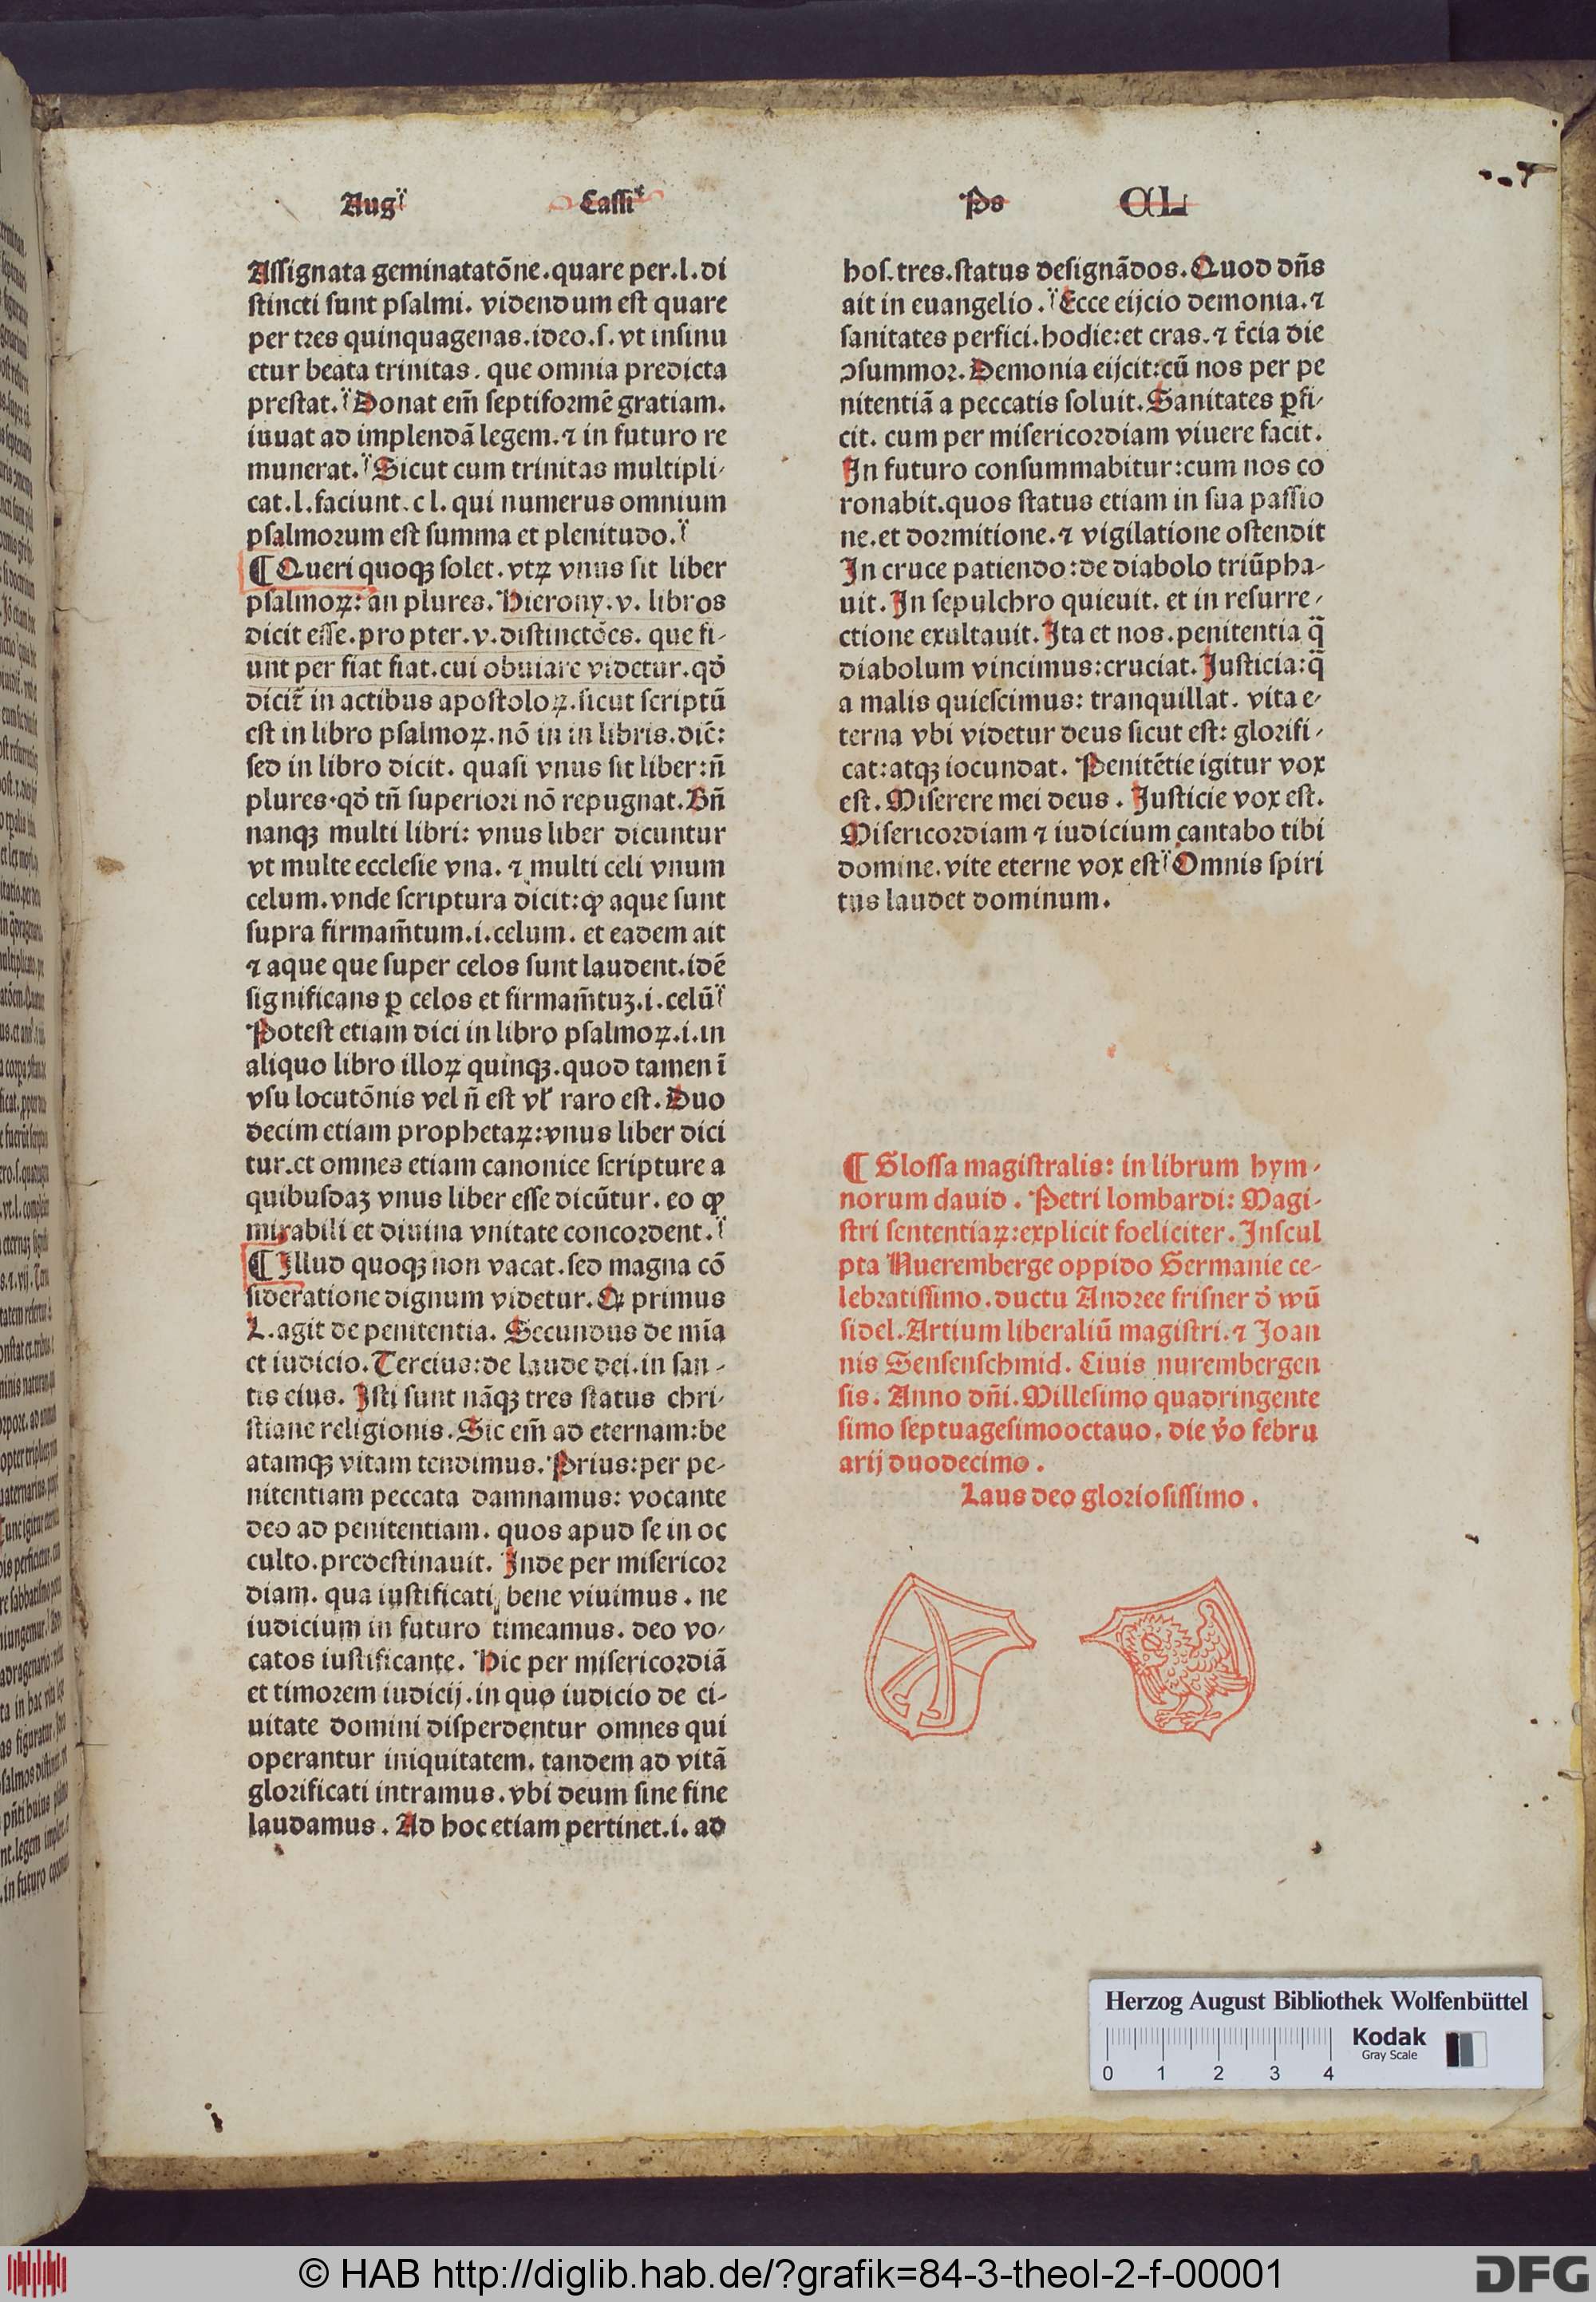 Augꝰ Cassiꝰ Ps CL
Assignata geminatatõne.quare per.l.di
stincti sunt psalmi. videndum est quare
per tres quinquagenas.ideo.s.vt insinu
etur beata trinitas. que omnia predicta
prestat. Donat em̃ septiformẽ gratiam.
iuuat ad implendã legem.⁊ in futuro re
munerat. Sicut cum trinitas multipli⸗
cat.l.faciunt.cl.qui numerus omnium
psalmorum est summa et plenitudo.
¶ Queri quoqꝫ solet.vtꝝ vnus sit liber
psalmoꝝ: an plures. Hierony.v. libros
dicit esse.propter.v.distinctões. que fi⸗
unt per fiat fiat.cui obuiare videtur.qđ
dicit̃ in actibus apostoloꝝ.sicut scriptũ
est in libro psalmoꝝ.nõ in in libris.dic̃:
sed in libro dicit. quasi vnus sit liber:ñ
plures.qđ tñ superiori nõ repugnat.Bñ
nanqꝫ multi libri: vnus liber dicuntur
vt multe ecclesie vna.⁊ multi celi vnum
celum.vnde scriptura dicit:ꝙ aque sunt
supra firmam̃tum.i.celum. et eadem ait
⁊ aque que super celos sunt laudent.idẽ
significans ꝑ celos et firmam̃tuꝫ.i.celũ
Potest etiam dici in libro psalmoꝝ.i.in
aliquo libro illoꝝ quinqꝫ.quod tamen ĩ
vsu locutõnis vel ñ est vꝉ raro est. Duo
decim etiam prophetaꝝ:vnus liber dici
tur.et omnes etiam canonice scripture a
quibusdaꝫ vnus liber esse dicũtur. eo ꝙ
mirabili et diuina vnitate concordent.
¶ Illud quoqꝫ non vacat.sed magna cõ
sideratione dignum videtur. Ꝙ primus
L.agit de penitentia. Secundus de mĩa
et iudicio.Tercius:de laude dei.in san⸗
tis eius. Isti sunt nãqꝫ tres status chri⸗
stiane religionis.Sic em̃ ad eternam:be
atamqꝫ vitam tendimus.Prius:per pe⸗
nitentiam peccata damnamus: vocante
deo ad penitentiam. quos apud se in oc
culto.predestinauit. Inde per misericor
diam. qua iustificati bene viuimus. ne
iudicium in futuro timeamus. deo vo⸗
catos iustificante. Hic per misericordiã
et timorem iudicij.in quo iudicio de ci⸗
uitate domini disperdentur omnes qui
operantur iniquitatem. tandem ad vitã
glorificati intramus.vbi deum sine fine
laudamus. Ad hoc etiam pertinet.i. ad
hos.tres.status designãdos.Quod dñs
ait in euangelio. Ecce eijcio demonia.⁊
sanitates perfici.hodie:et cras.⁊ t̃cia die
ↄsummor.Demonia eijcit:cũ nos per pe
nitentiã a peccatis soluit.Sanitates ꝑfi⸗
cit. cum per misericordiam viuere facit.
In futuro consummabitur:cum nos co
ronabit.quos status etiam in sua passio
ne.et dormitione.⁊ vigilatione ostendit
In cruce patiendo:de diabolo triũpha⸗
uit. In sepulchro quieuit. et in resurre⸗
ctione exultauit. Ita et nos.penitentia q̃
diabolum vincimus:cruciat.Justicia:q̃
a malis quiescimus: tranquillat. vita e⸗
terna vbi videtur deus sicut est: glorifi⸗
cat:atqꝫ iocundat. Penitẽtie igitur vox
est. Miserere mei deus. Justicie vox est.
Misericordiam ⁊ iudicium cantabo tibi
domine.vite eterne vox est Omnis spiri
tus laudet dominum.
¶ Glossa magistralis: in librum hym⸗
norum dauid. Petri lombardi: Magi⸗
stri sententiaꝝ:explicit foeliciter.Inscul
pta Nueremberge oppido Germanie ce⸗
lebratissimo.ductu Andree frisner đ wũ
sidel.Artium liberaliũ magistri.⁊ Joan
nis Sensenschmid. Ciuis nurembergen
sis. Anno dñi.Millesimo quadringente
simo septuagesimooctauo. die v̉o febru
arij duodecimo.
Laus deo gloriosissimo.
Herzog August Bibliothek Wolfenbüttel
Kodak
Gray Scale
0 1 2 3 4
© HAB http://diglib.hab.de/?grafik=84-3-theol-2-f-00001
DFG